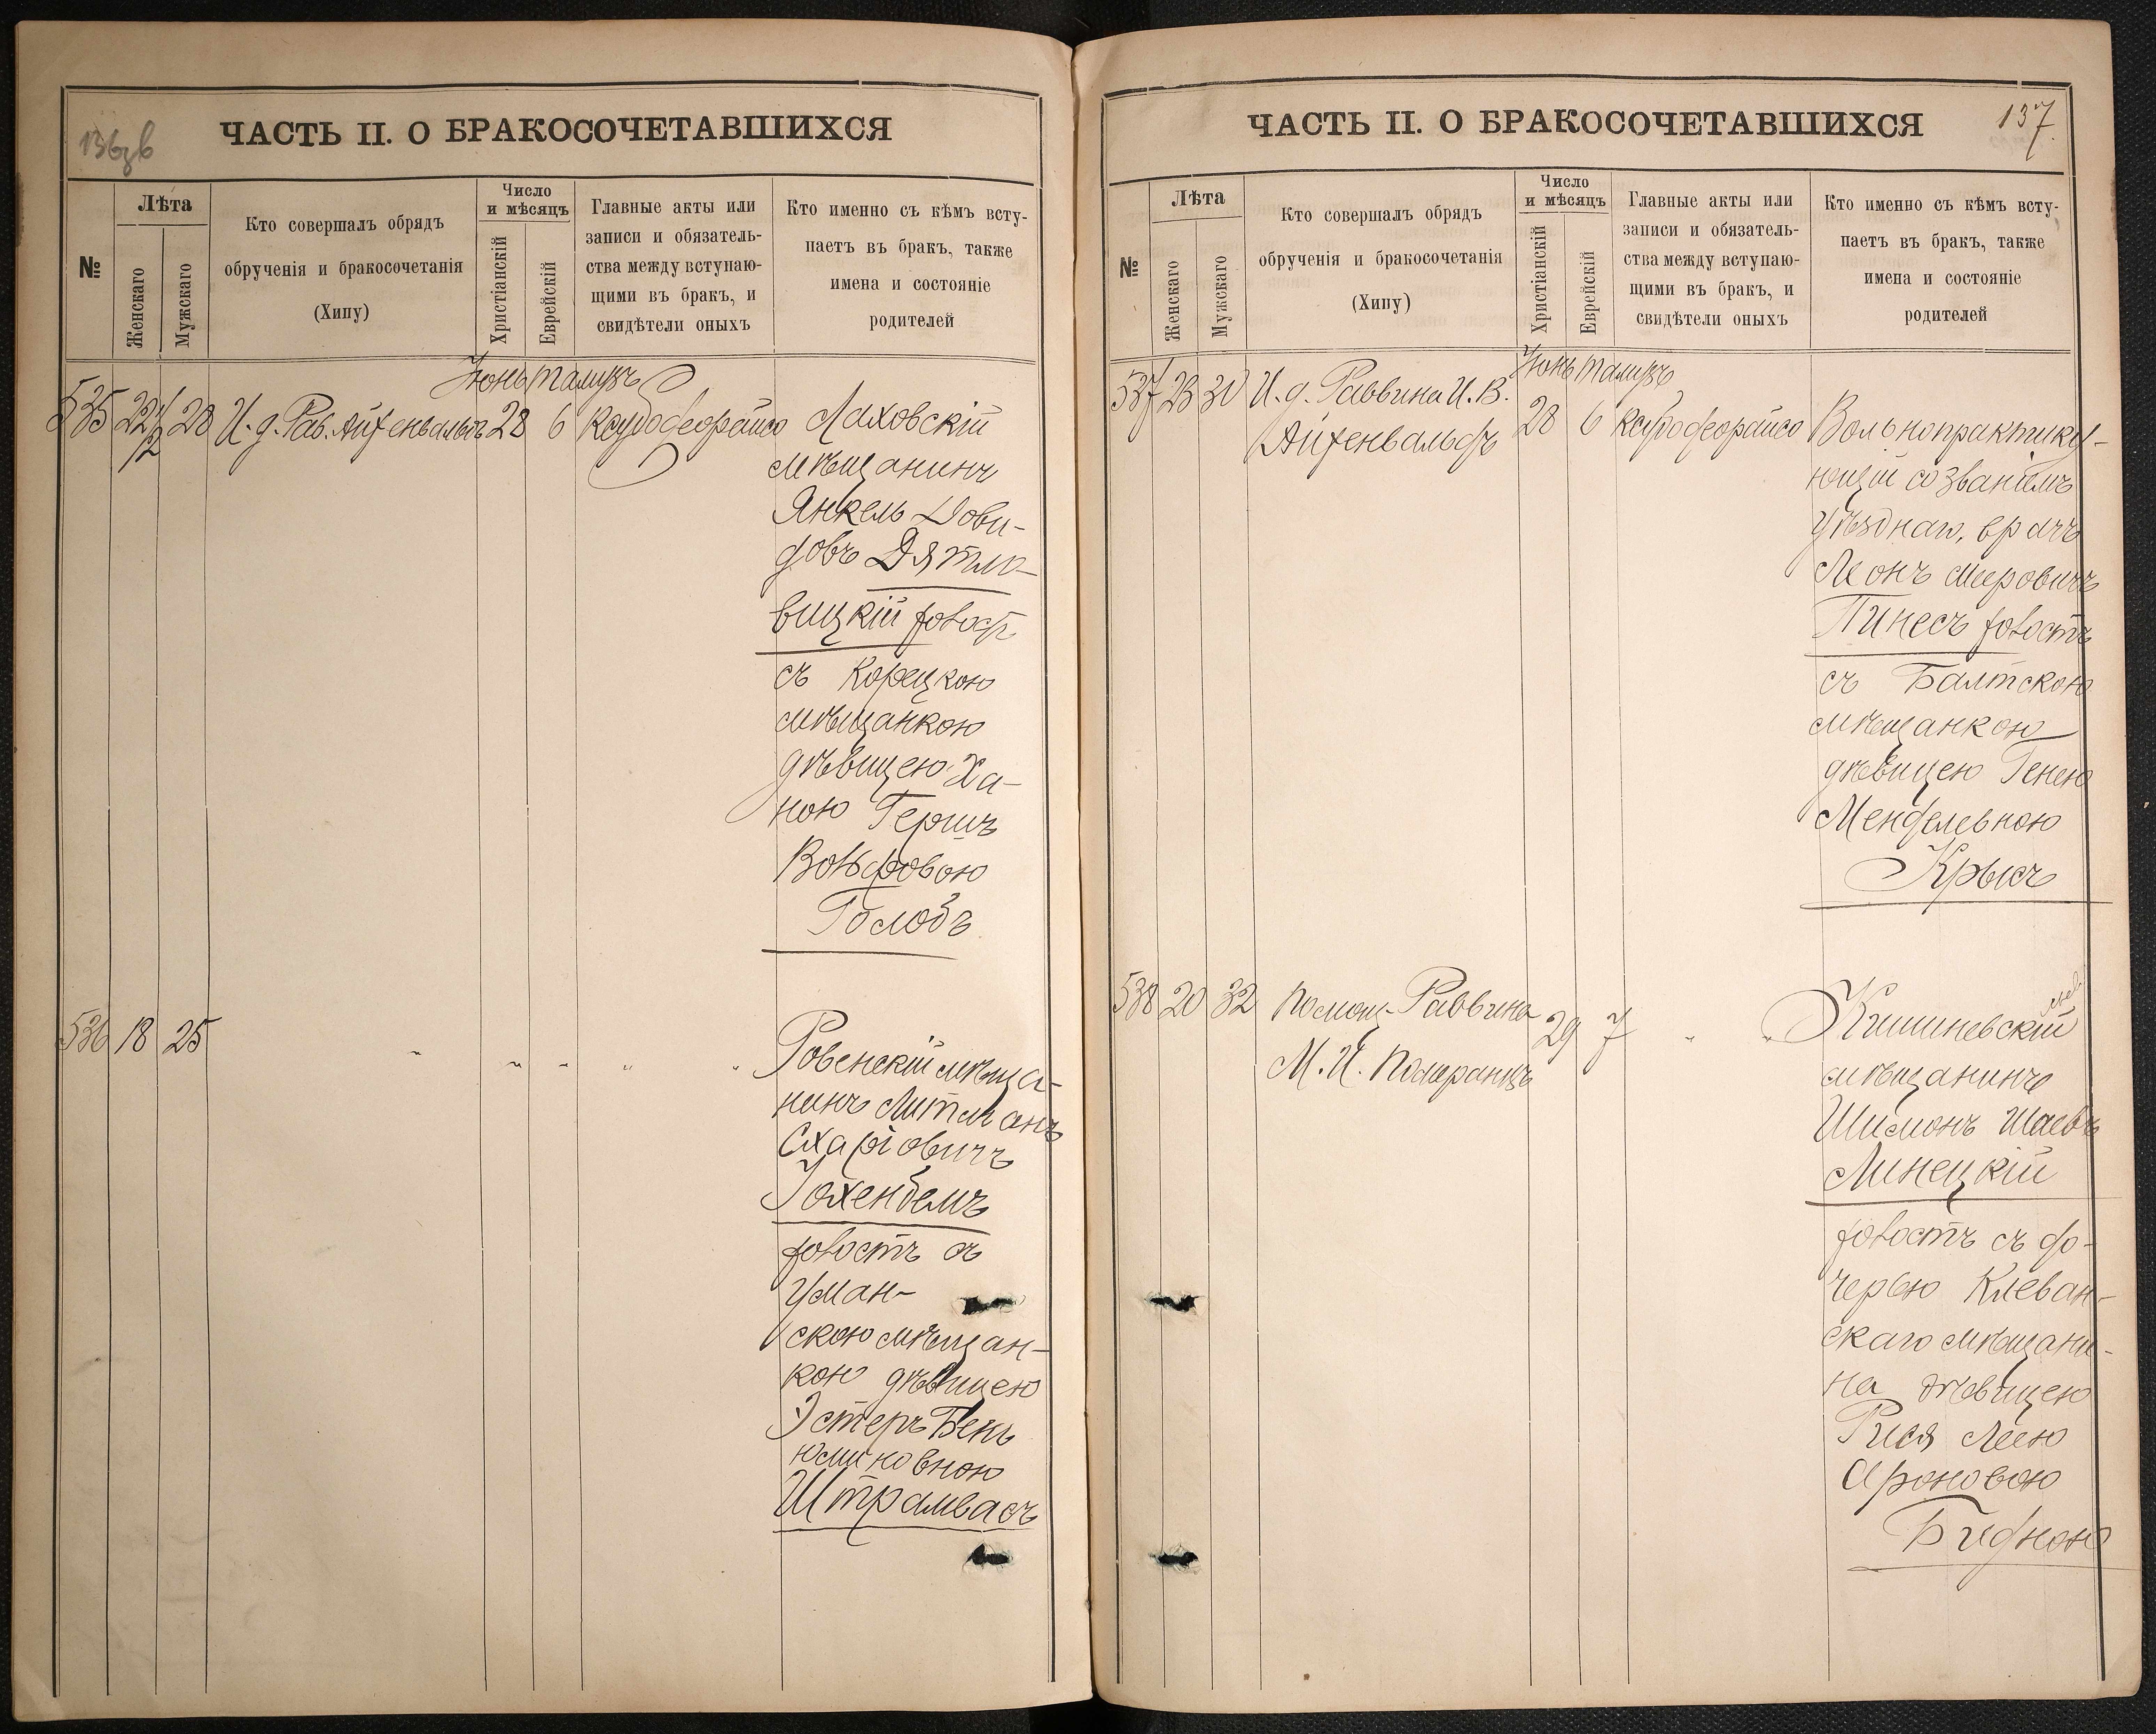 136 зв
ЧАСТЬ II. О БРАКОСОЧЕТАВШИХСЯ
№
Лѣта
Женскаго
Мужскаго
Кто совершалъ обрядъ
обрученія и бракосочетанія
(Хипу)
Число
и мѣсяцъ
Христіанскій
Еврейскій
Главные акты или
записи и обязатель-
ства между вступаю-
щими въ бракъ, и
свидѣтели оныхъ
Кто именно съ кѣмъ всту-
паетъ въ бракъ, также
имена и состояніе
родителей
Іюнь Тамузъ
535 22 1/2 28 И. д. Рав. Айхенвальдъ 28 6 Ксубодеорайсо Ляховскій
мѣщанинъ
Янкель Дови-
довъ Дятло-
вицкій холост
съ Корецкою
мѣщанкою
дѣвицею Ха-
ною Гершъ
Вольфовою
Голодъ
536 18 25 " " " " " Ровенскій мѣща-
нинъ Литманъ
Схаріовичъ
Гохенбемъ
холостъ съ
Уман-
скою мѣщан-
кою дѣвицею
Эстеръ Бень
юминовною
Штрамвасъ
137
ЧАСТЬ II. О БРАКОСОЧЕТАВШИХСЯ
№
Лѣта
Женскаго
Мужскаго
Кто совершалъ обрядъ
обрученія и бракосочетанія
(Хипу)
Число
и мѣсяцъ
Христіанскій
Еврейскій
Главные акты или
записи и обязатель-
ства между вступаю-
щими въ бракъ, и
свидѣтели оныхъ
Кто именно съ кѣмъ всту-
паетъ въ бракъ, также
имена и состояніе
родителей
Іюнь Тамузъ
537 23 30 И. д. Раввина И. В.
Айхенвальдъ 28 6 Ксубодеорайсо Вольнопрактику-
ющій со званіемъ
уѣзднаго, врачъ
Леонъ Мееровичъ
Пинесъ холостъ
съ Балтскою
мѣщанкою
дѣвицею Генею
Менделевною
Крысъ
538 20 32 Помощ. Раввина 29 7 " " Кишиневскій
М. И. Померанцъ
мѣщанинъ
Шимонъ Шаевъ
Линецкій
холостъ съ до-
черью Клеван-
скаго мѣщани-
на дѣвицею
Рися Леею
Ароновою
Бидною